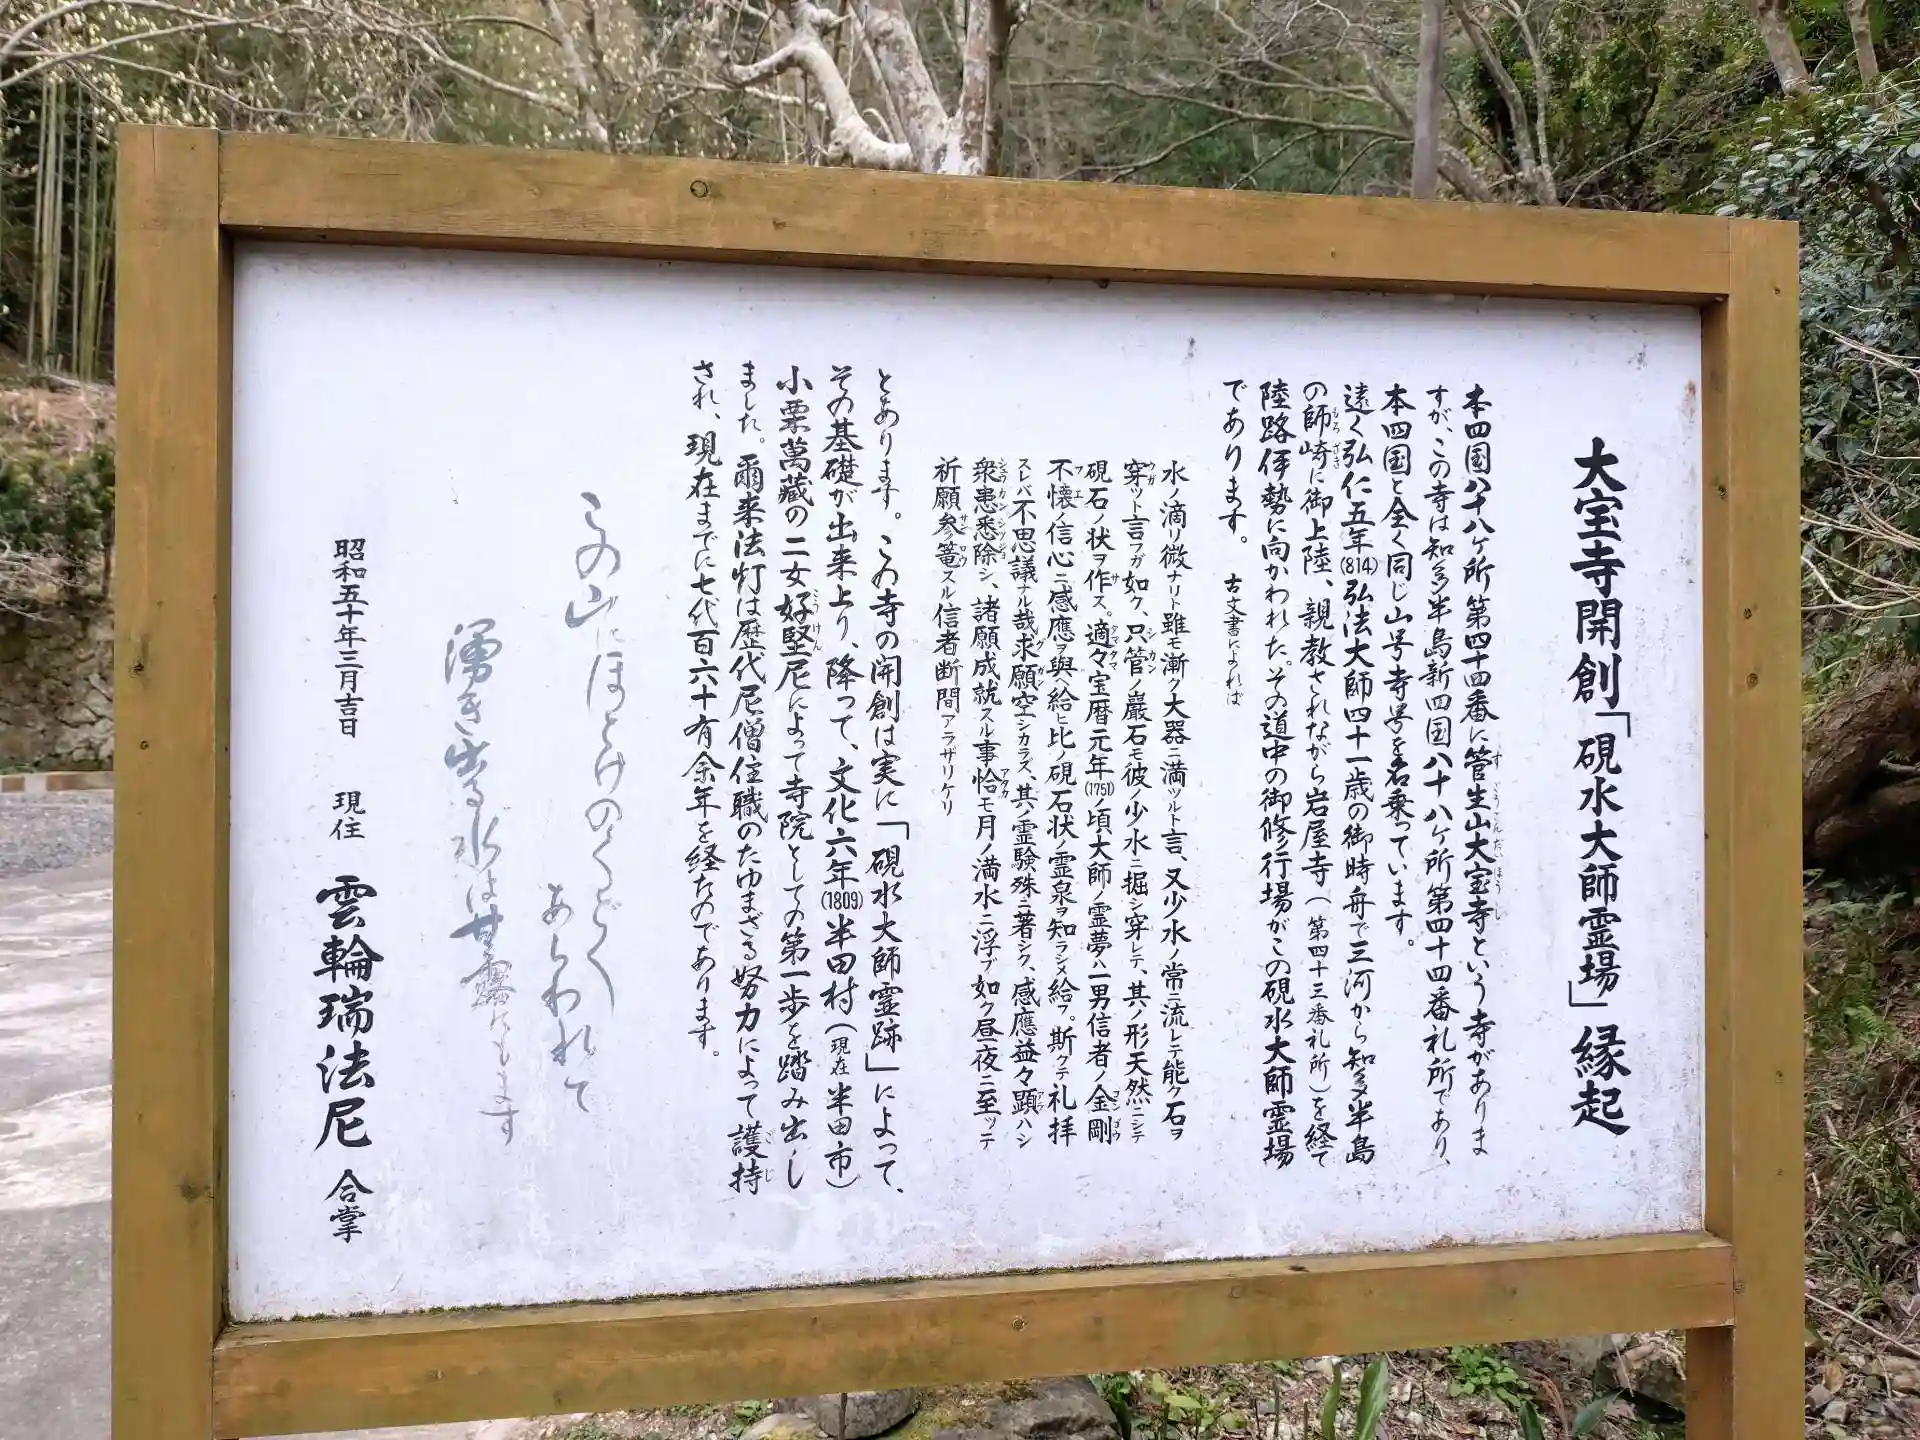 大宝寺開創「硯水大師霊場」縁起
本四国八十八ヶ所第四十四番に菅生山大宝寺という寺がありま
すが、この寺は知多半島新四国八十八ヶ所第四十四番札所であり、
本四国と全く同じ山号寺号を名乗っています。
遠く弘仁五年(814)弘法大師四十一歳の御時舟で三河から知多半島
の師崎に御上陸、親教されながら岩屋寺(第四十三番札所)を経て
陸路伊勢に向かわれた。その道中の御修行場がこの硯水大師霊場
であります。 古文書によれば
水ノ滴リ微ナリト雖モ漸ク大器ニ満ツルト言、又少水ノ常ニ流レテ能ケ石ヲ
穿ツト言フガ如ク、只管ノ巖石モ彼ノ少水ニ掘シ穿レテ、其ノ形天然ニシテ
硯石ノ状ヲ作ス。適々宝暦元年(1751)ノ頃大師ノ霊夢ハ一男信者ノ金剛
不懐ノ信心ニ感應ヲ與ヘ給ヒ比ノ硯石状ノ霊泉ヲ知ラシメ給フ。斯クテ礼拝
スレバ不思議ナル哉求願空シカラズ、其ノ霊験殊ニ著シク、感應益々顕ハシ
衆患悉除シ、諸願成就スル事恰モ月ノ満水ニ浮ブ如ク昼夜ニ至ッテ
祈願参篭スル信者断間アラザリケリ
とあります。この寺の開創は実に「硯水大師霊跡」によって、
その基礎が出来上り、降って、文化六年(1809)半田村(現在半田市)
小栗萬藏の二女好堅尼によって寺院としての第一歩を踏み出し
ました。爾来法灯は歴代尼僧住職のたゆまざる努力によって護持
され、現在までに七代百六十有余年を経たのであります。
この山にほとけのくどく
あらわれて
湧き出る水は甘露にもます
昭和五十年三月吉日 現住 雲輪瑞法尼 合掌